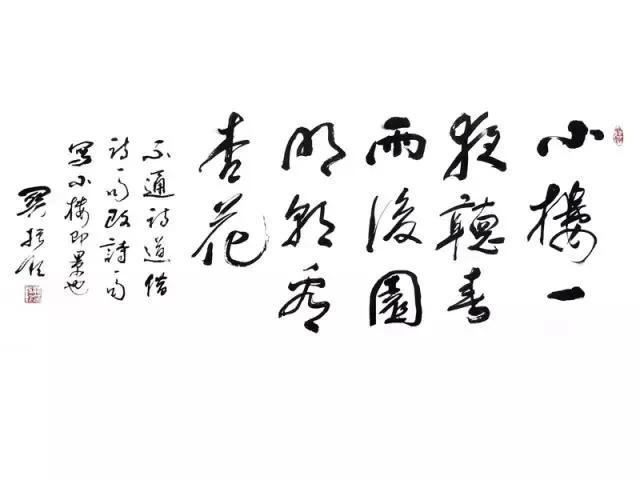 小樓一
夜聽春
雨後園
明朝看
杏花
不通詩道借
詩句改詩句
寫小樓即景也